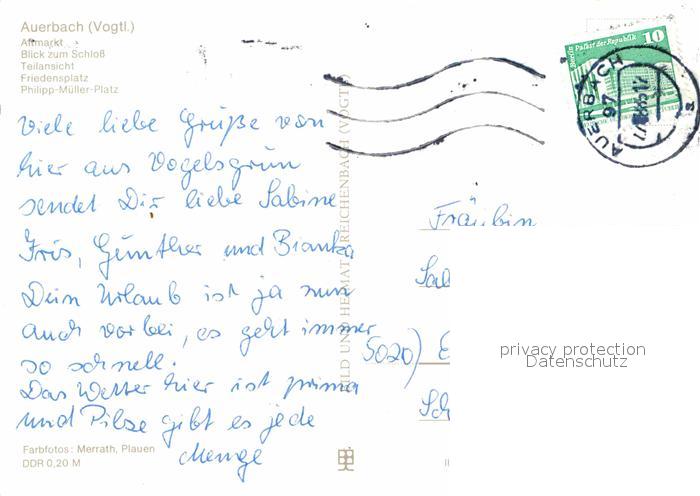 Auerbach (Vogtl.)
Altmarkt
Blick zum Schloß
Teilansicht
Friedensplatz
Philipp-Müller-Platz
Berlin Palast der Republik 10
AUERBACH
97
Viele liebe Grüße von
hier aus Vogelsgrün
sendet Dir liebe Sabine
Iris, Günther und Bianka
Dein Urlaub ist ja nun
auch vorbei, es geht immer
so schnell.
Das Wetter hier ist prima
und Pilze gibt es jede
Menge
BILD UND HEIMAT REICHENBACH (VOGTL)
Fräulein
Sab
5020) E
Sch
privacy protection
Datenschutz
Farbfotos: Merrath, Plauen
DDR 0,20 M